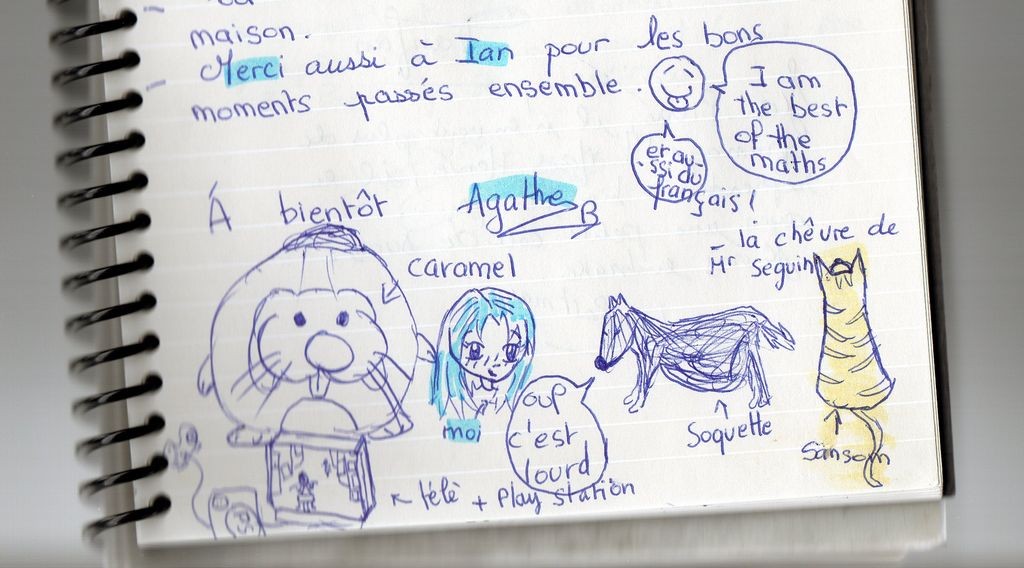 maison.
Merci aussi à Ian pour les bons
moments passés ensemble.
I am
the best
of the
maths
et au-
ssi du
français!
À bientôt
Agathe
B
caramel
la chêvre de
Mr Seguin
moi
oup
c'est
lourd
Soquette
Sansom
télè + Play Station